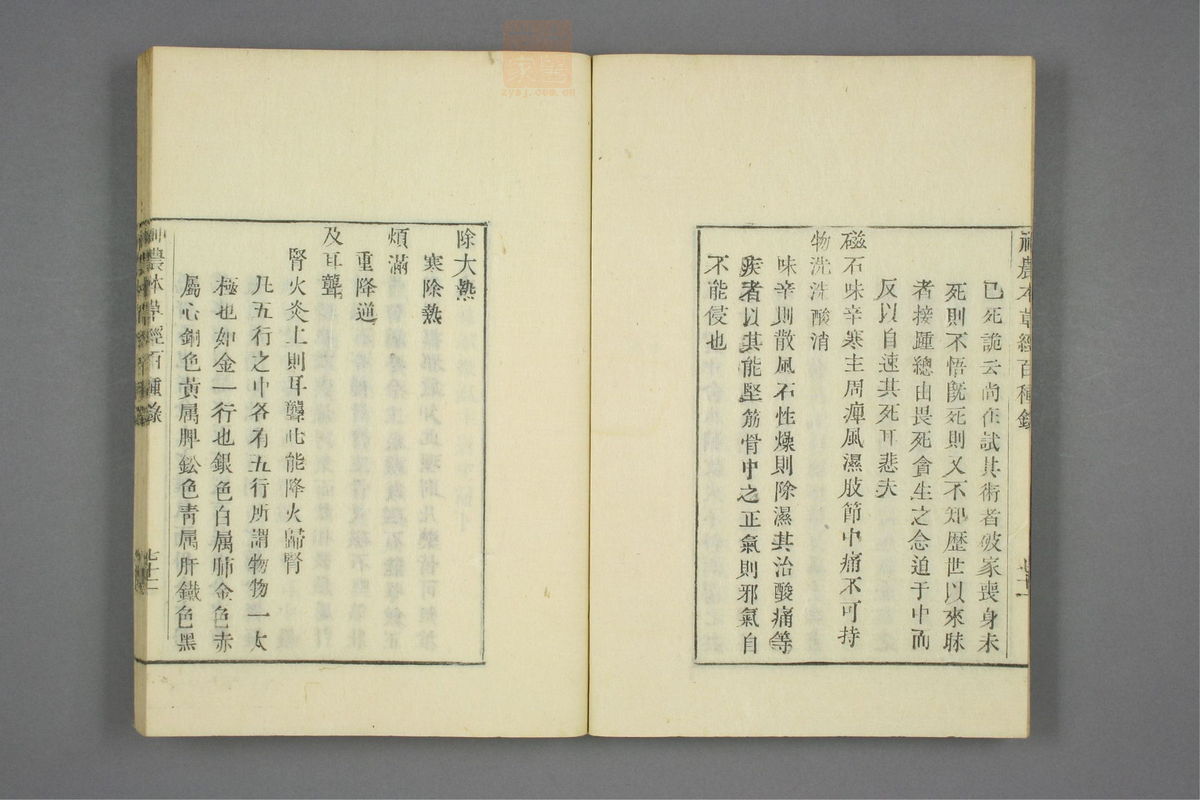 神農本草經百種錄
七十二
已死詭云尚在試其術者破家喪身未
死則不悟既死則又不知歷世以來昧
者接踵總由畏死貪生之念迫于中而
反以自速其死耳悲夫
磁石味辛寒主周痺風濕肢節中痛不可持
物洗洗酸消
味辛則散風石性燥則除濕其治酸痛等
疾者以其能堅筋骨中之正氣則邪氣自
不能侵也
除大熱
寒除熱
煩滿
重降逆
及耳聾
腎火炎上則耳聾此能降火歸腎
凡五行之中各有五行所謂物物一太
極也如金一行也銀色白属肺金色赤
屬心銅色黃属脾鉛色青属肝鐵色黑
神農本草經百種錄
zysj.com.cn